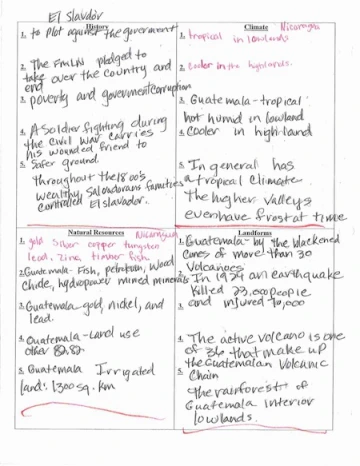 El Slavdór
History
1. to plot against the goverment
2. The FMLN pledged to
take over the country and
end
3. poverty and government corruption
4. A Soldier fighting during
the civil war carries
his wounded friend to
5. Safer ground.
Throughout the 1800's
wealthy, Salvadorans families
controlled El Slavador.
Climate
Nicaragua
1. tropical in lowlands
2. cooler in the highlands.
3. Guatemala-tropical
hot humid in lowland
4. Cooler in high-land
5. In general has
a tropical climate
The higher valleys
even have frost at time
Natural Resources
Nicaragua
1. gold silver copper tungsten
lead, zinc, timber fish.
2. Guatemala- Fish, petroleum, wood
chicle, hydropower mined minerals
3. Guatemala gold, nickel, and
lead.
4. Guatemala-Land use
other 82.82
5. Guatemala Irrigated
land: 1300 sq. km
Landforms
1. Guatemala- by the blackened
cones of more than 30
Volcanoes
2. In 1924 an earthquake
killed 23,000 people
3. and injured 70,000
4. The active volcano is one
of 36 that make up
the Guatemalan Volcanic
5. Chain
the rainforest of
Guatemala interior
lowlands.